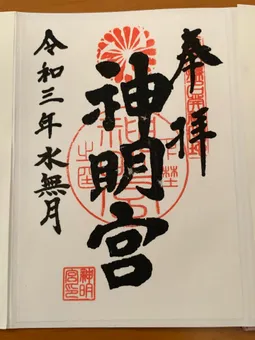 奉拝
神明宮
令和三年水無月
神明
宮印